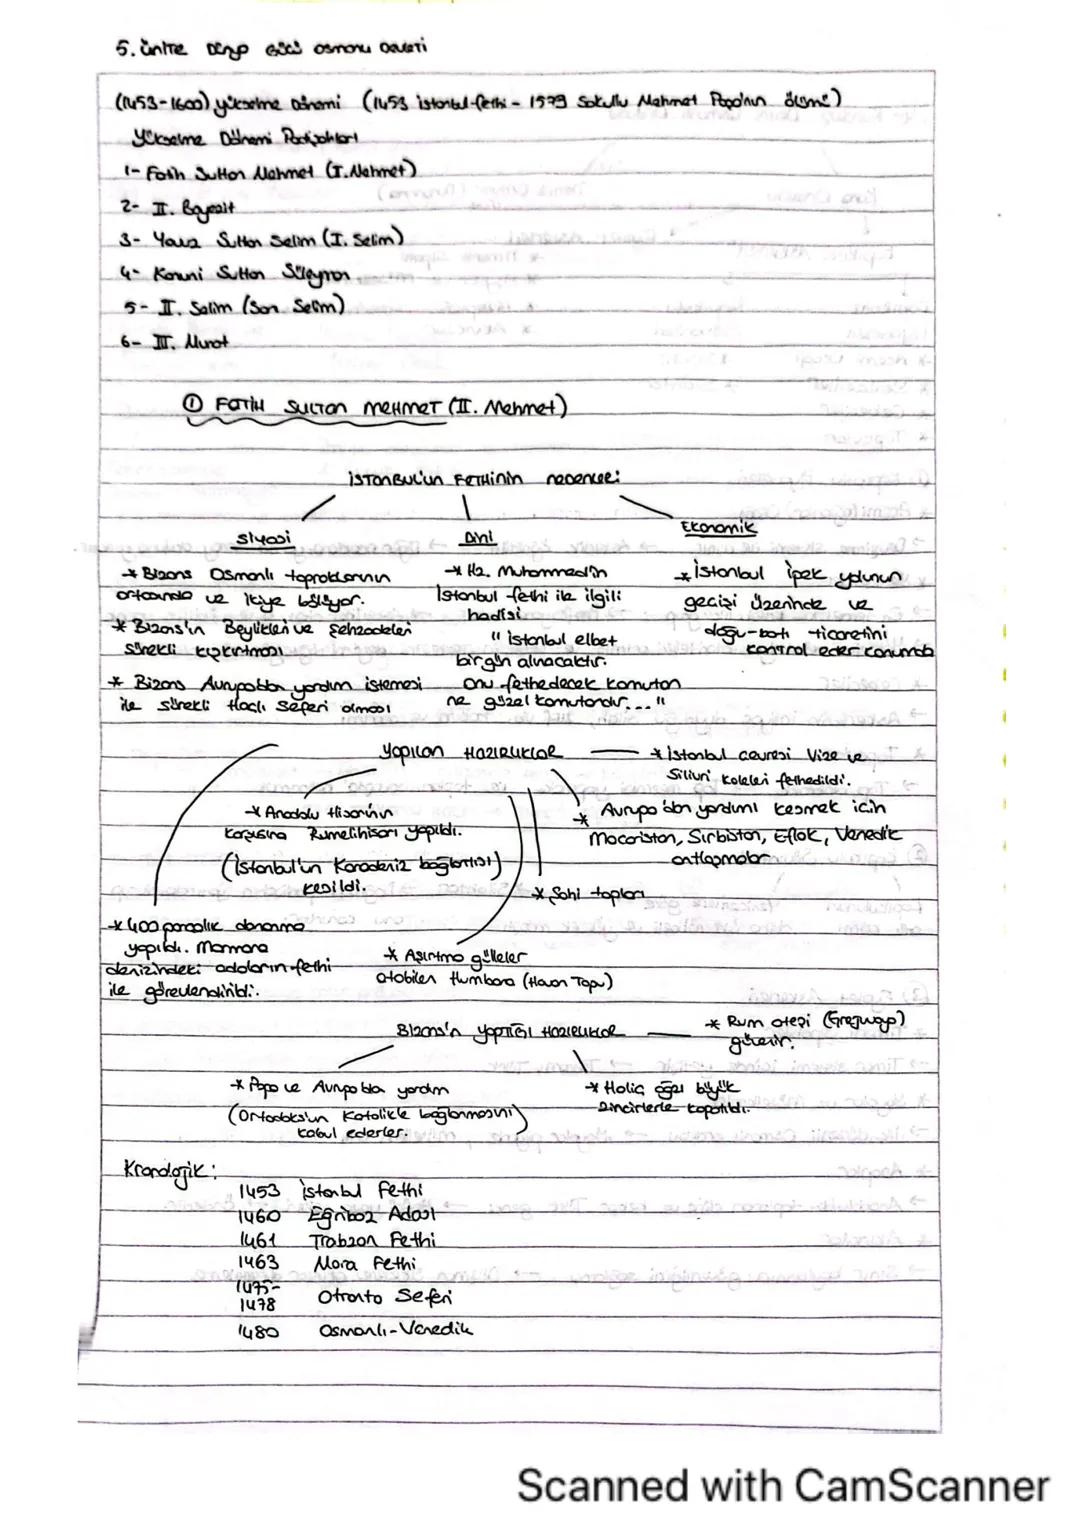 5. ünite Dünya Gücü Osmanlı Devleti
(1453-1600) yükselme Dönemi (1453 istanbul fethi - 1579 Sokullu Mehmet Paşa'nın ölümü)
Yükselme Dönemi Padişahları
1- Fatih Sultan Mehmet (I. Mehmet)
2- II. Bayezit
3- Yavuz Sultan Selim (I. Selim)
4- Kanuni Sultan Süleyman
5- II. Selim (Sarı Selim)
6- III. Murat
① FATİH SULTAN MEHMET (II. Mehmet)
İSTANBUL'un FETHİNİN nedenleri
Siyasi
Dini
Ekonomik
* Bizans Osmanlı topraklarının
ortasında ve ikiye bölüyor.
* Bizans'ın Beylikleri ve Şehzadeleri
sürekli kışkırtması
* Bizans Avrupa'dan yardım istemesi
ile sürekli Haçlı Seferi olması
* Hz. Muhammed'in
İstanbul fethi ile ilgili
hadisi
" istanbul elbet
bir gün alınacaktır.
onu fethedecek komutan
ne güzel komutandır... "
* İstanbul ipek yolunun
geçişi üzerinde ve
doğu-batı ticaretini
kontrol eder konumda
Yapılan HAZIRLIKLAR
* istanbul çevresi Vize ve
Silivri kaleleri fethedildi.
* Anadolu Hisarının
karşısına Rumelihisarı yapıldı.
(İstanbul'un Karadeniz bağlantısı)
kesildi.
* Avrupa'dan yardımı kesmek için
Macaristan, Sırbistan, Eflak, Venedik
antlaşmalar
* Şahi topları
* 400 parçalık donanma
yapıldı. Marmara
denizindeki adaların fethi
ile görevlendirildi.
* Aşırtma gülleler
atabilen Humbara (Havan Topu)
Bizans'ın YAPTIĞI HAZIRLIKLAR
* Rum ateşi (Grejuva)
* Papa ve Avrupa'dan yardım
(Ortodoks'un Katolikle bağlanmasını)
kabul ederler.
* Haliç ağzı büyük
zincirlerle kapatıldı.
Kronolojik:
1453 istanbul Fethi
1460 Eğriboz Adası
1461 Trabzon Fethi
1463 Mora Fethi
1475-
1478 Otranto Seferi
1480 Osmanlı-Venedik
Scanned with CamScanner